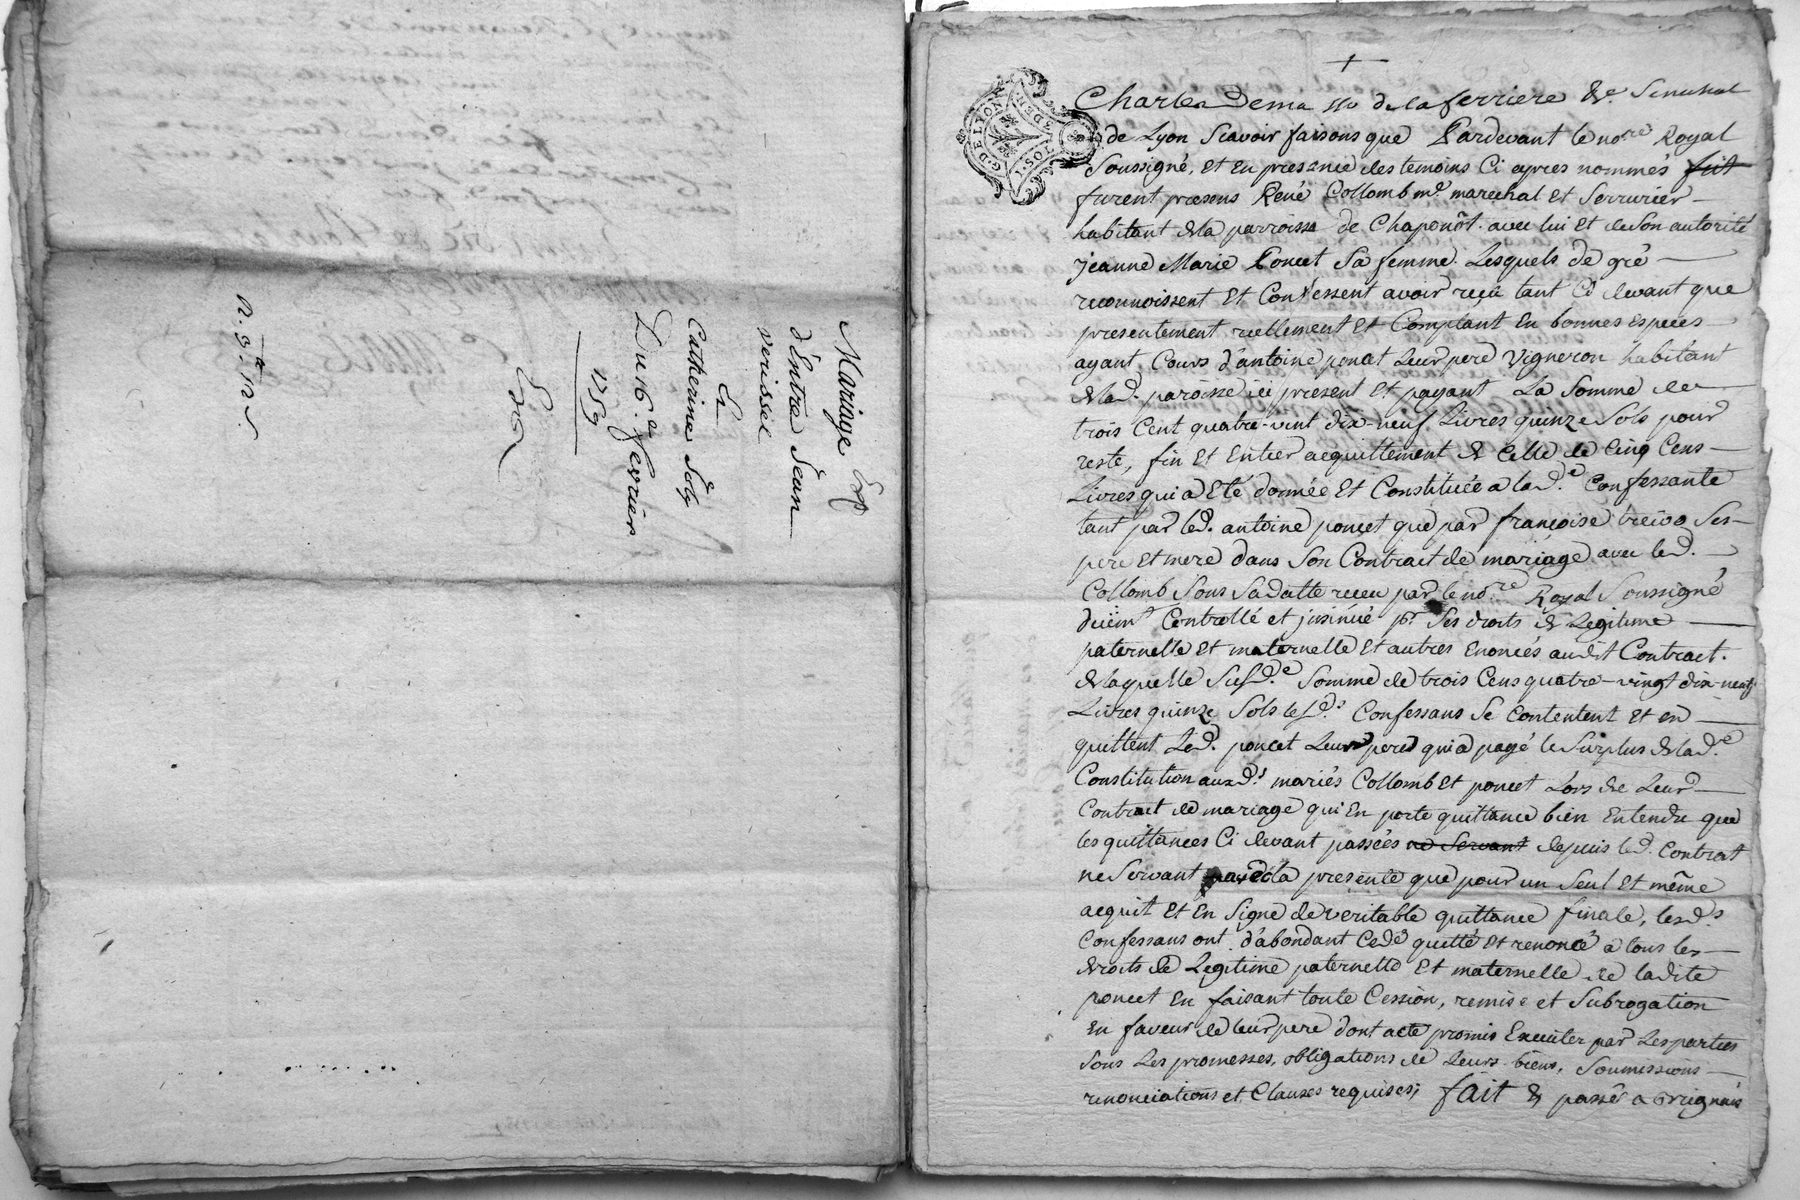 Mariage Exp
d'Entre Jean
verissel
Et
Catherine
Du 16.e fevrier
1759
Exp
G. DE LYON
Charles Demasso de la ferriere &c. Senechal
de Lyon Scavoir faisons que Pardevant le no.re Royal
Soussigné, et En presence des temoins Ci apres nommés fut
furent presens René Collomb m.d marechal et Serrurier
habitant de la parroisse de Chaponôt. avec lui et de Son autorité
Jeanne Marie Poncet Sa femme. Lesquels de gré
reconnoissent et Confessent avoir reçu tant Ci devant que
presentement reellement et Comptant En bonnes especes
ayant Cours d'antoine poncet Leur pere Vigneron habitant
de lad. paroisse ici present et payant La Somme de
trois Cent quatre-vint dix-neuf Livres quinze Sols pour
reste, fin et Entier acquittement de Celle de Cinq Cens
Livres qui a Eté donnée et Constituée a lad.e Confessante
tant par led. antoine poncet que par françoise Ses
pere et mere dans Son Contract de mariage avec led.
Collomb Sous Sa datte receu par le no.re Royal Soussigné
duëm.t Controllé et jnsinüé p.r Ses droits de Legitime
paternelle et maternelle et autres Enoncés audit Contract.
de laquelle Susd.e Somme de trois Cens quatre-vingt dix-neuf
Livres quinze Sols lesd.s Confessans Se Contentent et en
quittent Led. poncet Leur pere qui a payé le Surplus de lad.e
Constitution auxd.s mariés Collomb et poncet Lors de Leur
Contract de mariage qui En porte quittance bien Entendu que
les quittances Ci devant passées ne Servant depuis led. Contrat
ne Servant la presente que pour un Seul et même
acquit et En Signe de veritable quittance finale, lesd.s
Confessans ont d'abondant Cedé quitté et renoncé a tous les
droits de Legitime paternelle et maternelle de ladite
poncet En faisant toute Cession, remise et Subrogation
En faveur de leur pere dont acte promis Executer par Les parties
Sous Les promesses, obligations de Leurs biens, Soumissions
renonciations et Clauses requises; fait & passé a Brignais